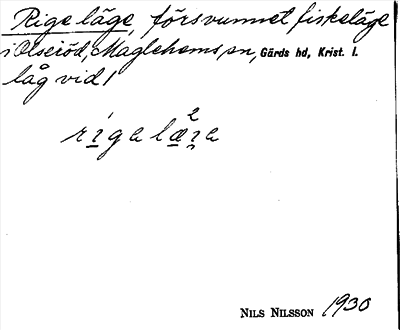 Rige läge, försvunnet fiskeläge
i Olseröd, Maglehems sn, Gärds hd, Krist. l.
låg vid /
rigelæ
NILS NILSSON 1930